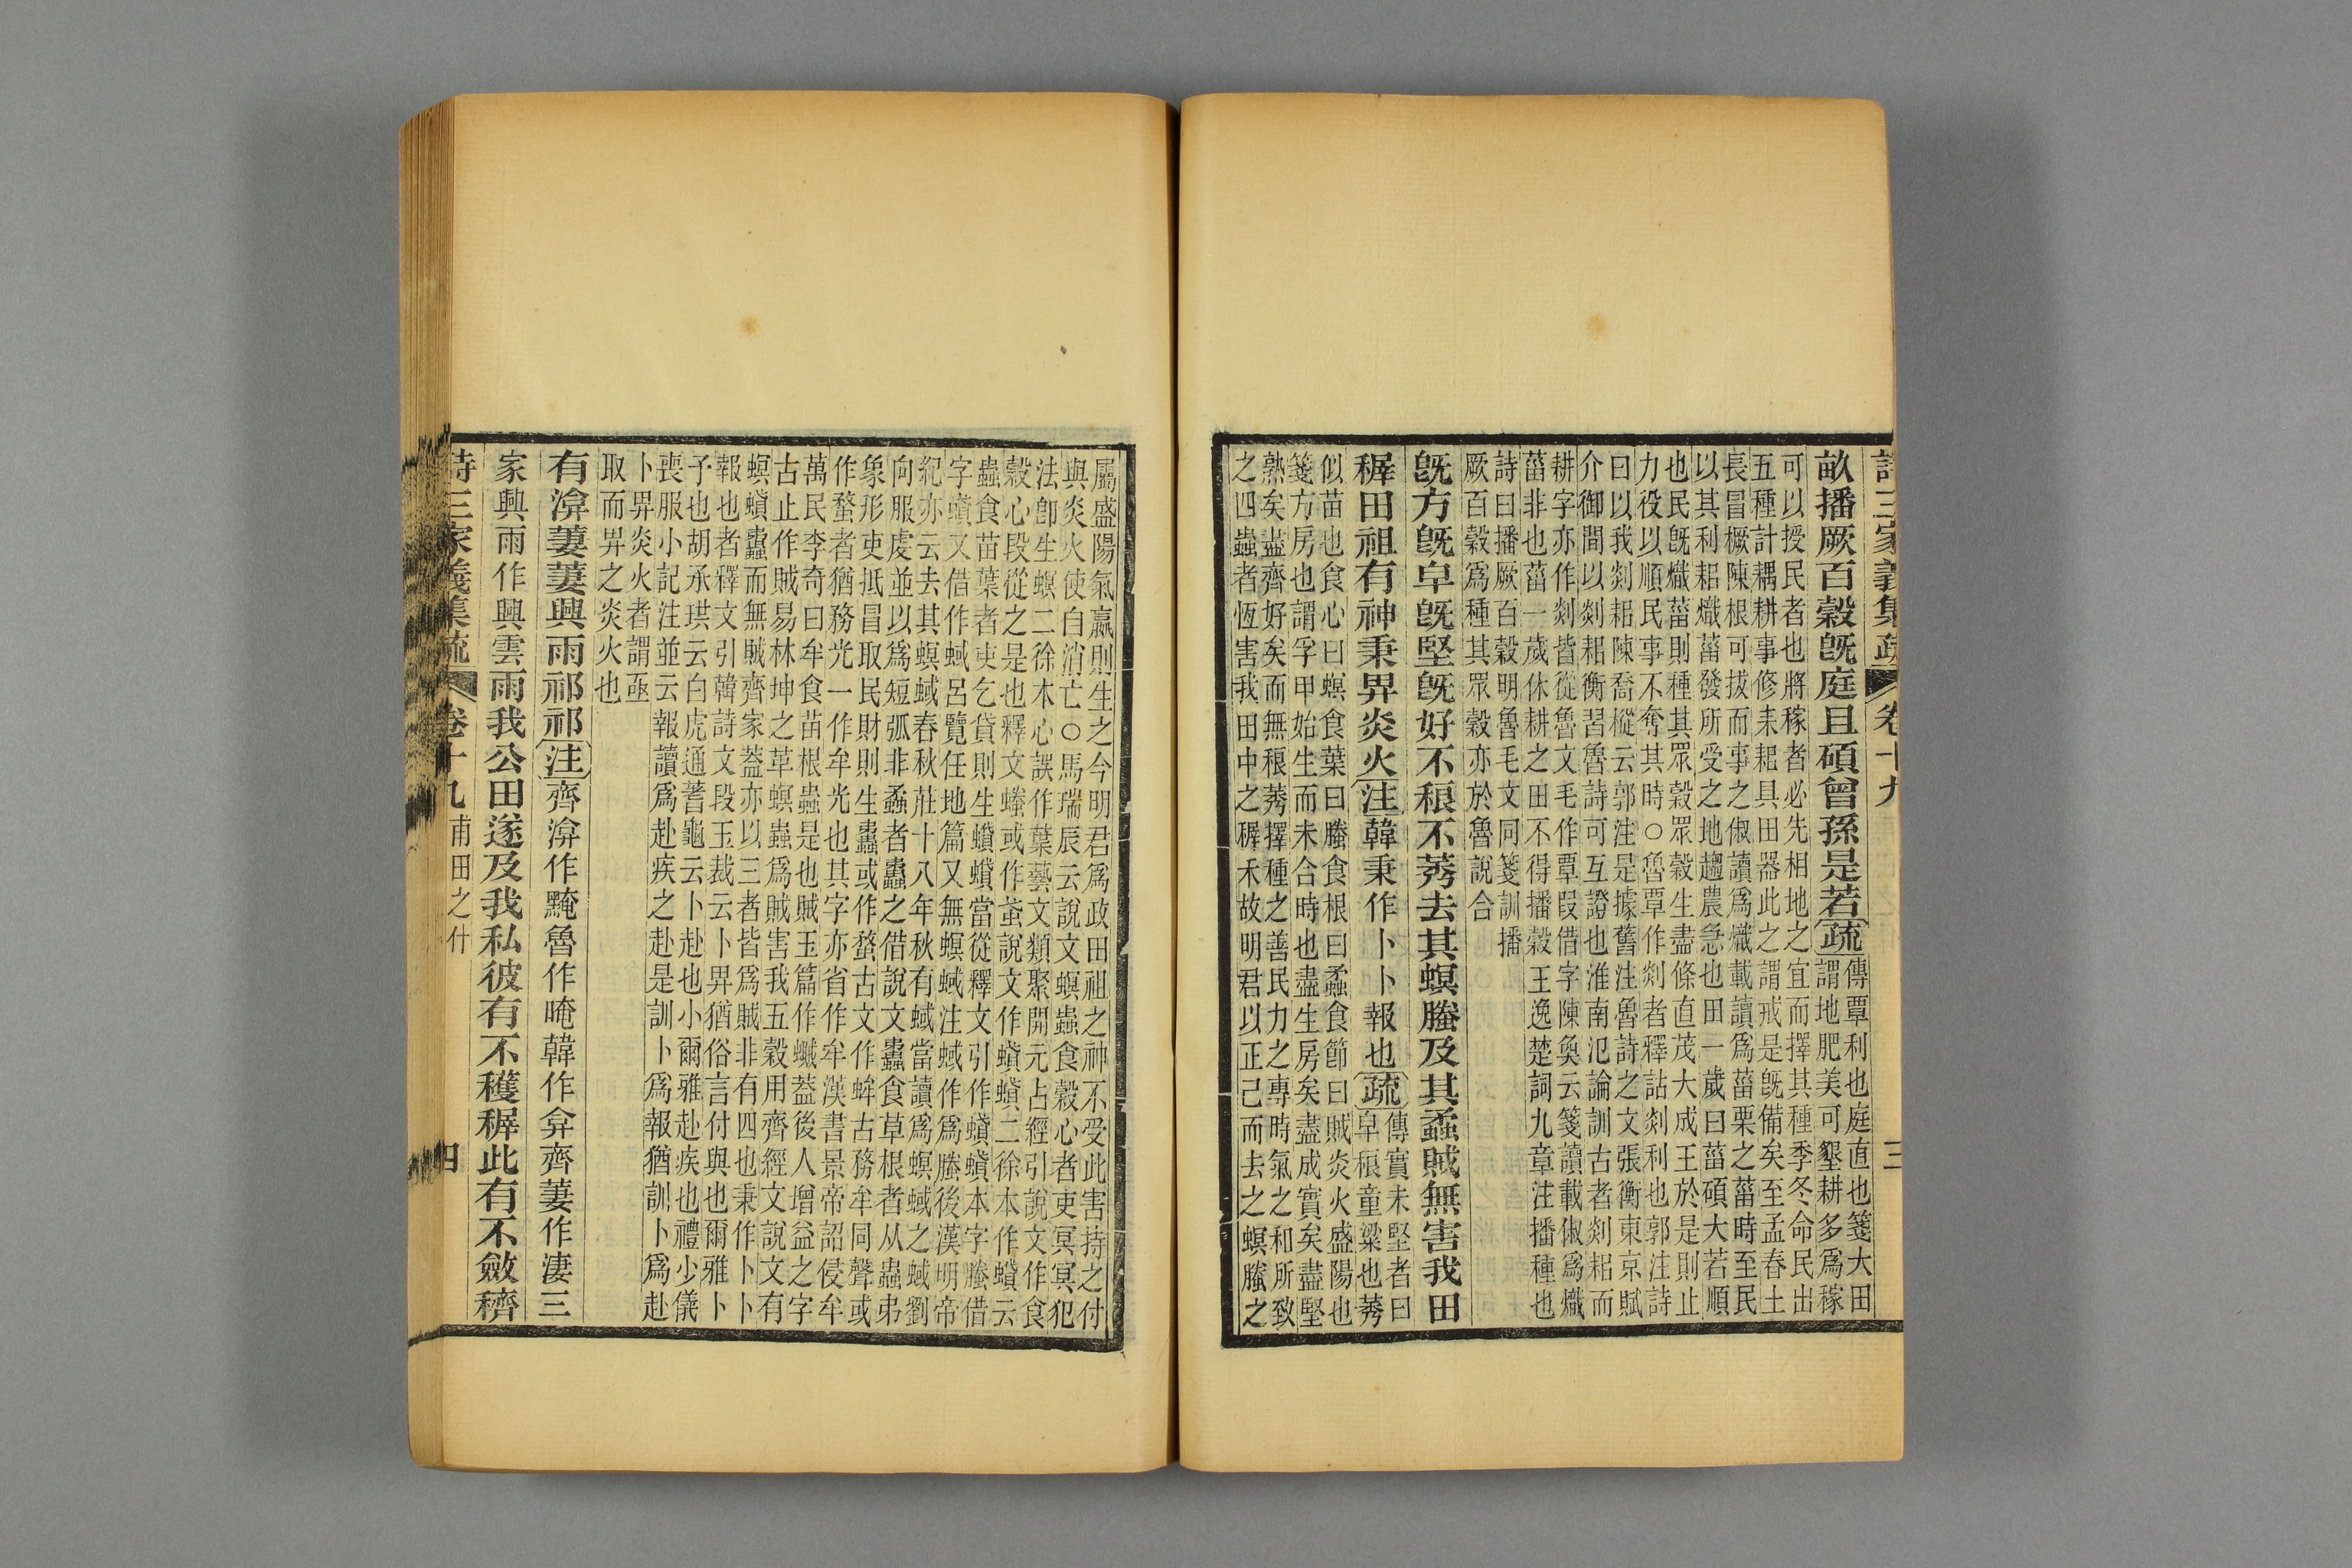 詩三家義集疏 卷十九 三
畝播厥百穀既庭且碩曾孫是若疏傳覃利也庭直也箋大田
謂地肥美可墾耕多爲稼
可以授民者也將稼者必先相地之宜而擇其種季冬命民出
五種計耦耕事修耒耜具田器此之謂戒是既備矣至孟春土
長冒橛陳根可拔而事之俶讀爲熾載讀爲菑栗之菑時至民
以其利耜熾菑發所受之地趨農急也田一歲曰菑碩大若順
也民既熾菑則種其眾穀眾穀生盡條直茂大成王於是則止
力役以順民事不奪其時○魯覃作剡者釋詁剡利也郭注詩
曰以我剡耜陳喬樅云郭注是據舊注魯詩之文張衡東京賦
介御間以剡耜衡習魯詩可互證也淮南氾論訓古者剡耜而
耕字亦作剡皆從魯文毛作覃叚借字陳奐云箋讀載俶爲熾
菑非也菑一歲休耕之田不得播穀王逸楚詞九章注播種也
詩曰播厥百穀明魯毛文同箋訓播
厥百穀爲種其眾穀亦於魯說合
既方既皁既堅既好不稂不莠去其螟螣及其蟊賊無害我田
穉田祖有神秉畀炎火注韓秉作卜卜報也疏傳實未堅者曰
皁稂童粱也莠
似苗也食心曰螟食葉曰螣食根曰蟊食節曰賊炎火盛陽也
箋方房也謂孚甲始生而未合時也盡生房矣盡成實矣盡堅
熟矣盡齊好矣而無稂莠擇種之善民力之專時氣之和所致
之四蟲者恆害我田中之穉禾故明君以正己而去之螟螣之
屬盛陽氣贏則生之今明君爲政田祖之神不受此害持之付
與炎火使自消亡○馬瑞辰云說文螟蟲食穀心者吏冥冥犯
法卽生螟二徐本心誤作葉藝文類聚開元占經引說文作食
穀心段從之是也釋文螣或作𧈩說文作蟘蟘二徐本作蟘云
蟲食苗葉者吏乞貸則生蟘蟘當從釋文引作蟘蟘本字螣借
字蟘又借作蜮呂覽任地篇又無螟蜮注蜮作爲螣後漢明帝
紀亦云去其螟蜮春秋莊十八年秋有蜮當讀爲螟蜮之蜮劉
向服虔並以爲短弧非蟊者蟲之借說文蟲食草根者从蟲弟
象形吏抵冒取民財則生蟊或作蝥古文作蛑古務牟同聲或
作蝥者猶務光一作牟光也其字亦省作牟漢書景帝詔侵牟
萬民李奇曰牟食苗根蟲是也賊玉篇作蠈蓋後人增益之字
古止作賊易林坤之革螟蟲爲賊害我五穀用齊經文說文有
螟蟘蟊而無賊齊家蓋亦以三者皆爲賊非有四也秉作卜卜
報也者釋文引韓詩文段玉裁云卜畀猶俗言付與也爾雅卜
予也胡承珙云白虎通蓍龜云卜赴也小爾雅赴疾也禮少儀
喪服小記注並云報讀爲赴疾之赴是訓卜爲報猶訓卜爲赴
卜畀炎火者謂亟
取而畀之炎火也
有渰萋萋興雨祁祁注齊渰作黤魯作晻韓作弇齊萋作淒三
家興雨作興雲雨我公田遂及我私彼有不穫穉此有不斂穧
詩三家義集疏 卷十九 甫田之什 四